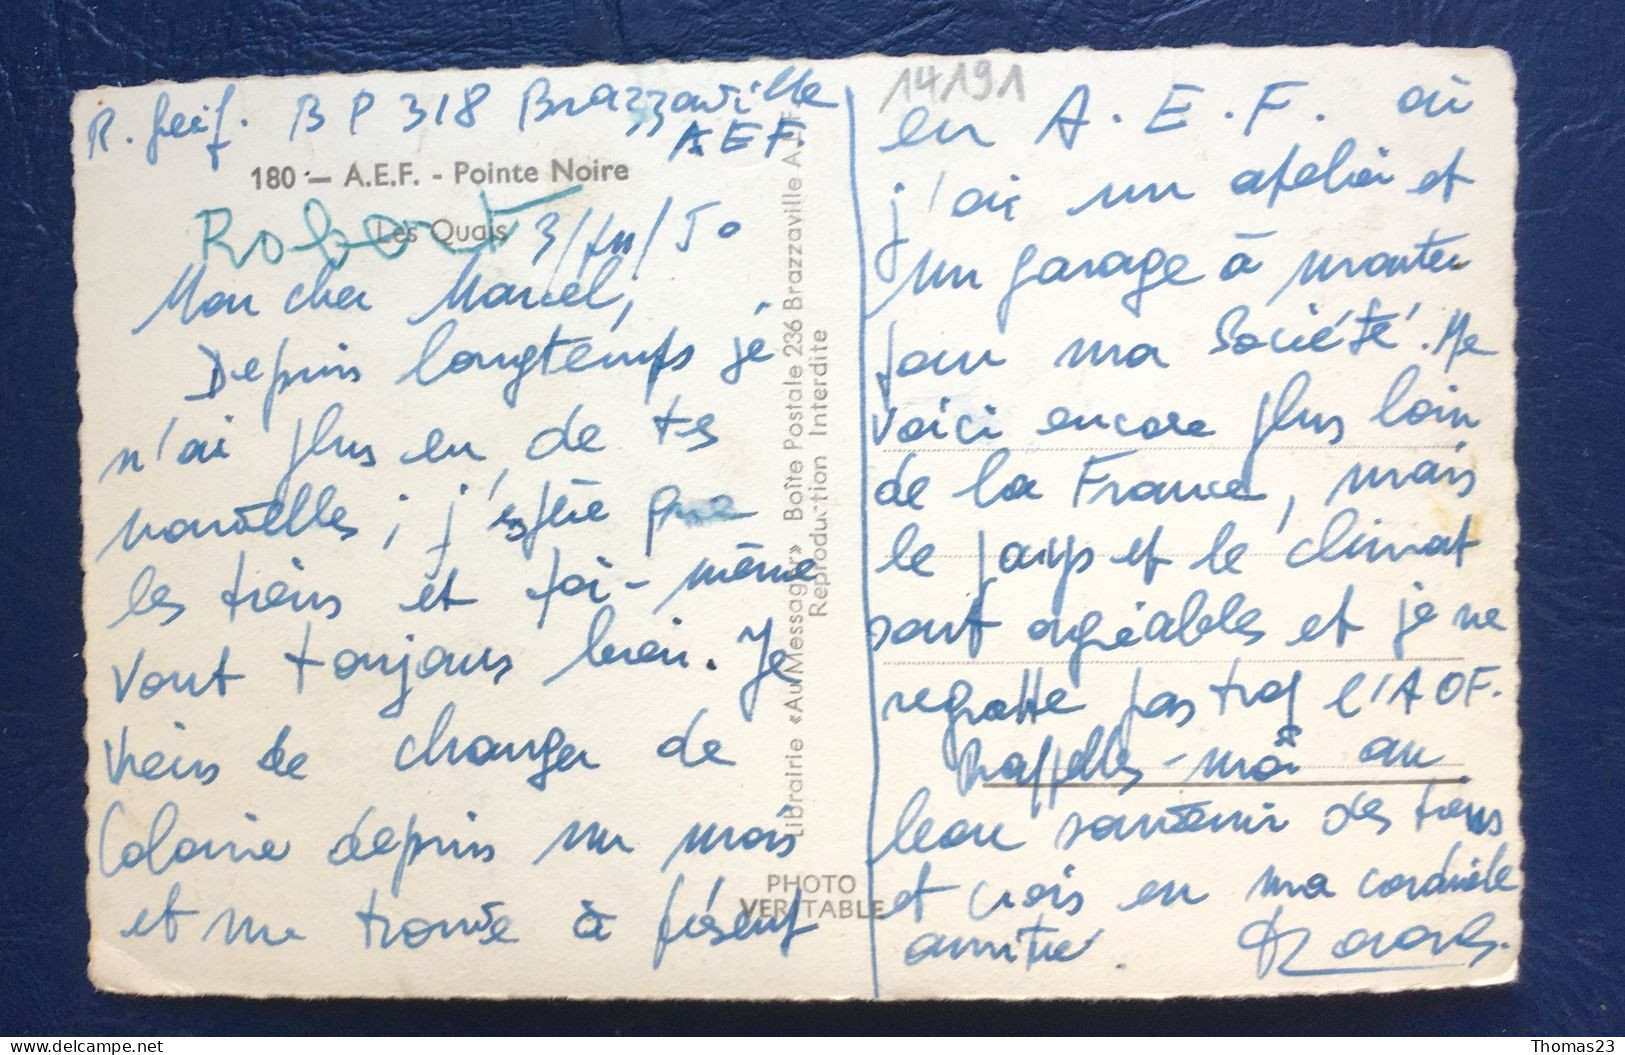 R. BP 318 Brazzaville
AEF.
180 — A.E.F. - Pointe Noire
Les Quais
Robert
3/ /50
Mon cher Marcel,
Depuis longtemps je
n'ai plus eu de tes
nouvelles ; j'espère que
les tiens et toi-même
vont toujours bien. Je
viens de changer de
Colonie depuis un mois
et me trouve à présent
Librairie «Au Messager» Boîte Postale 236 Brazzaville A.E.F.
Reproduction Interdite
PHOTO
VERITABLE
14191
en A.E.F. où
j'ai un atelier et
un garage à monter
pour ma Société. Me
voici encore plus loin
de la France, mais
le pays et le climat
sont agréables et je ne
regrette pas trop l'AOF.
Rappelles-moi au
bon souvenir des tiens
et crois en ma cordiale
amitié.
delcampe.net
Thomas23